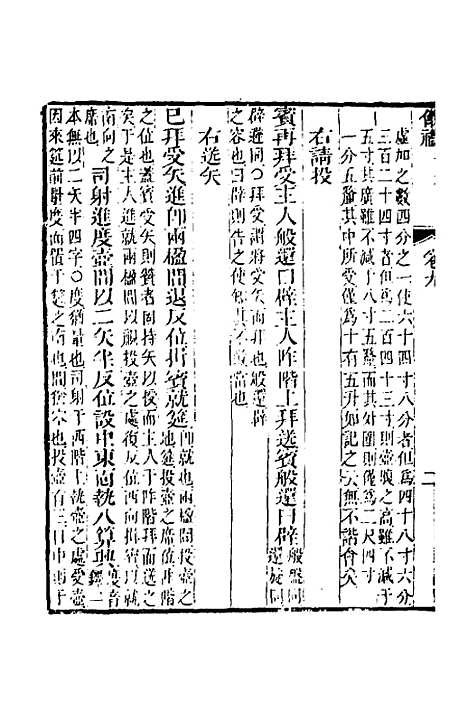 儀禮 卷九 二
虛加之數四分之一使六十四寸八分者但爲四十八寸六分
三百二十四寸者但爲二百四十三寸則壺腹之高雖不減于
五寸其廣雖不減于八寸五釐而其外圍則僅爲二尺四寸
一分五釐其中所受僅爲十有五升如記之云無不諧會矣
右請投
賓再拜受主人般還曰辟主人阼階上拜送賓般還曰辟般盤同還旋同
辟避同○拜受謂將受矢而拜也般還辟
之容也曰辟則告之使知其不敢當也
右送矢
已拜受矢進卽兩楹間退反位揖賓就筵卽就也兩楹間投壺之地筵投壺之席位阼階
之位也蓋賓受矢則贊者同持矢以授而主人于阼階拜而送之
矢于是主人進就兩楹間以觀投壺之處復反位西向揖賓以就
南向之席也司射進度壺間以二矢半反位設中東面執八算興度音鐸一
本無以二矢半四字○度猶量也司射于西階上執壺之處受壺
因來筵前度而置于筵之南也間投壺有三日中則于